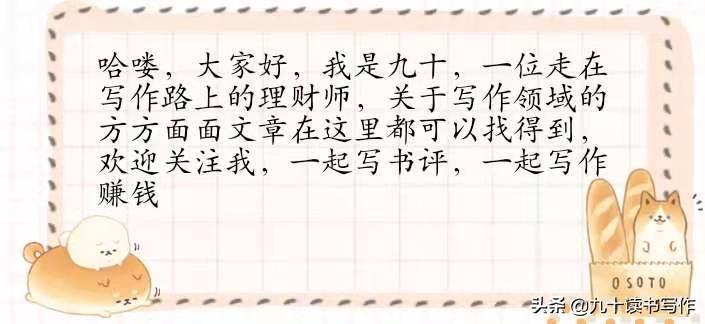 哈喽，大家好，我是九十，一位走在
写作路上的理财师，关于写作领域的
方方面面文章在这里都可以找得到，
欢迎关注我，一起写书评，一起写作
赚钱
OSOTO
头条 @九十读书写作